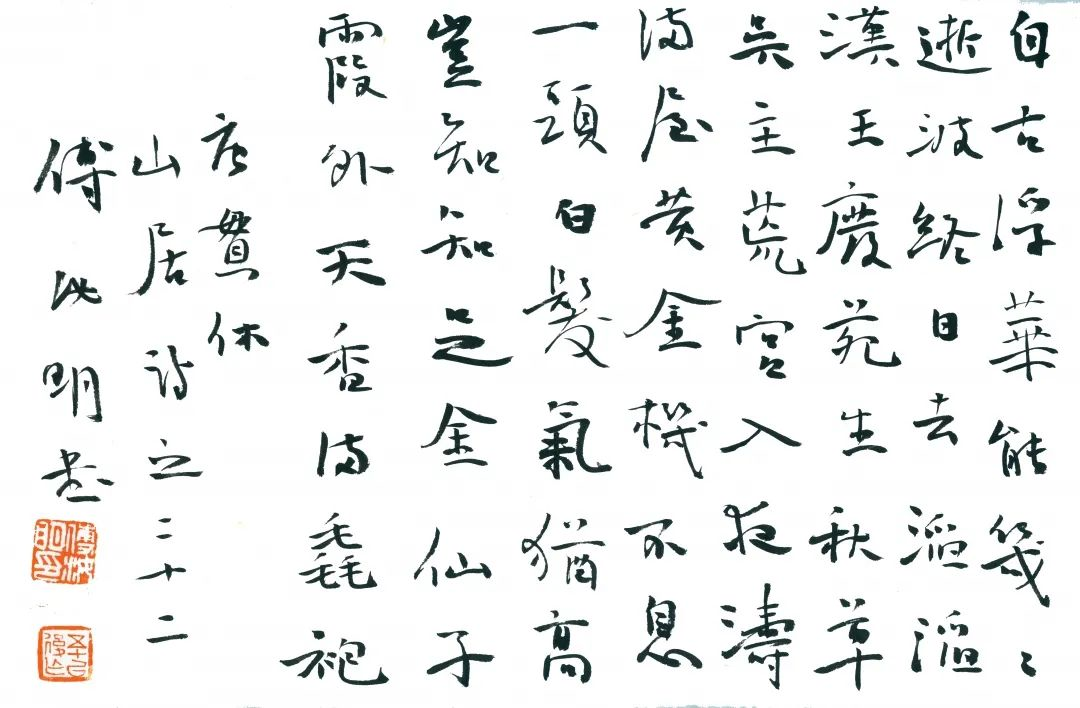 自古浮華能幾〻
逝波終日去滔滔
漢王廢苑生秋草
吳主荒宮入夜濤
滿屋黃金機不息
一頭白髮氣猶高
豈知知足金仙子
霞外天香滿毳袍
唐貫休
山居詩之二十二
傅明書